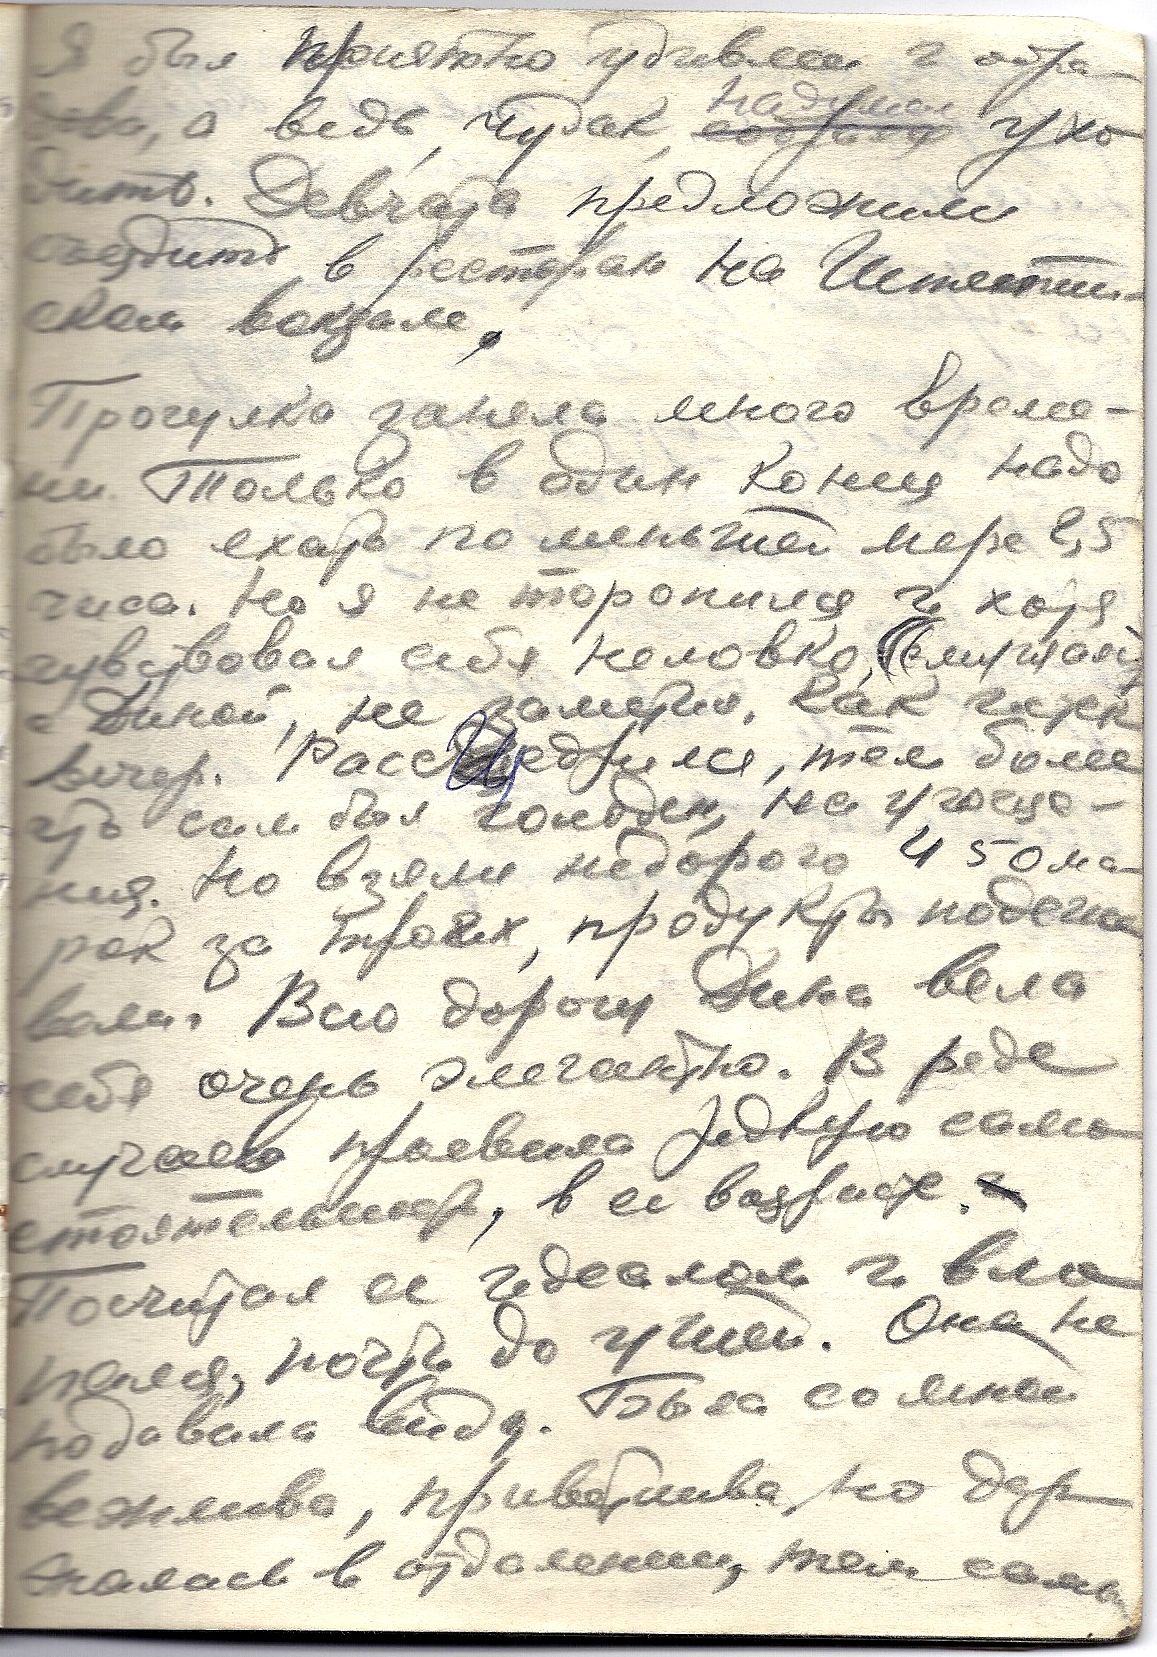 Я был приятно удивлен и обра-
дован, а ведь, чудак, надумал ухо-
дить. Девчата предложили
съездить в ресторан на Штеттин-
ском вокзале.
Прогулка заняла много време-
ни. Только в один конец надо
было ехать по меньшей мере 1,5
часа. Но я не торопился и хотя
чувствовал себя неловко,
с Диной, не заметил, как истек
вечер. Расщедрился, тем более
что сам был голоден, на угоще-
ния. Но взяли недорого 450 ма-
рок за троих, продукты подсчи-
вали. Всю дорогу Дина вела
себя очень элегантно. В ряде
случаев проявила редкую само-
стоятельность, в ее возрасте.
Посчитал ее идеалом и влю-
пался, почти до ушей. Она не
подавала виду. Была со мной
вежлива, приветлива, но дер-
жалась в отдалении, тем самым